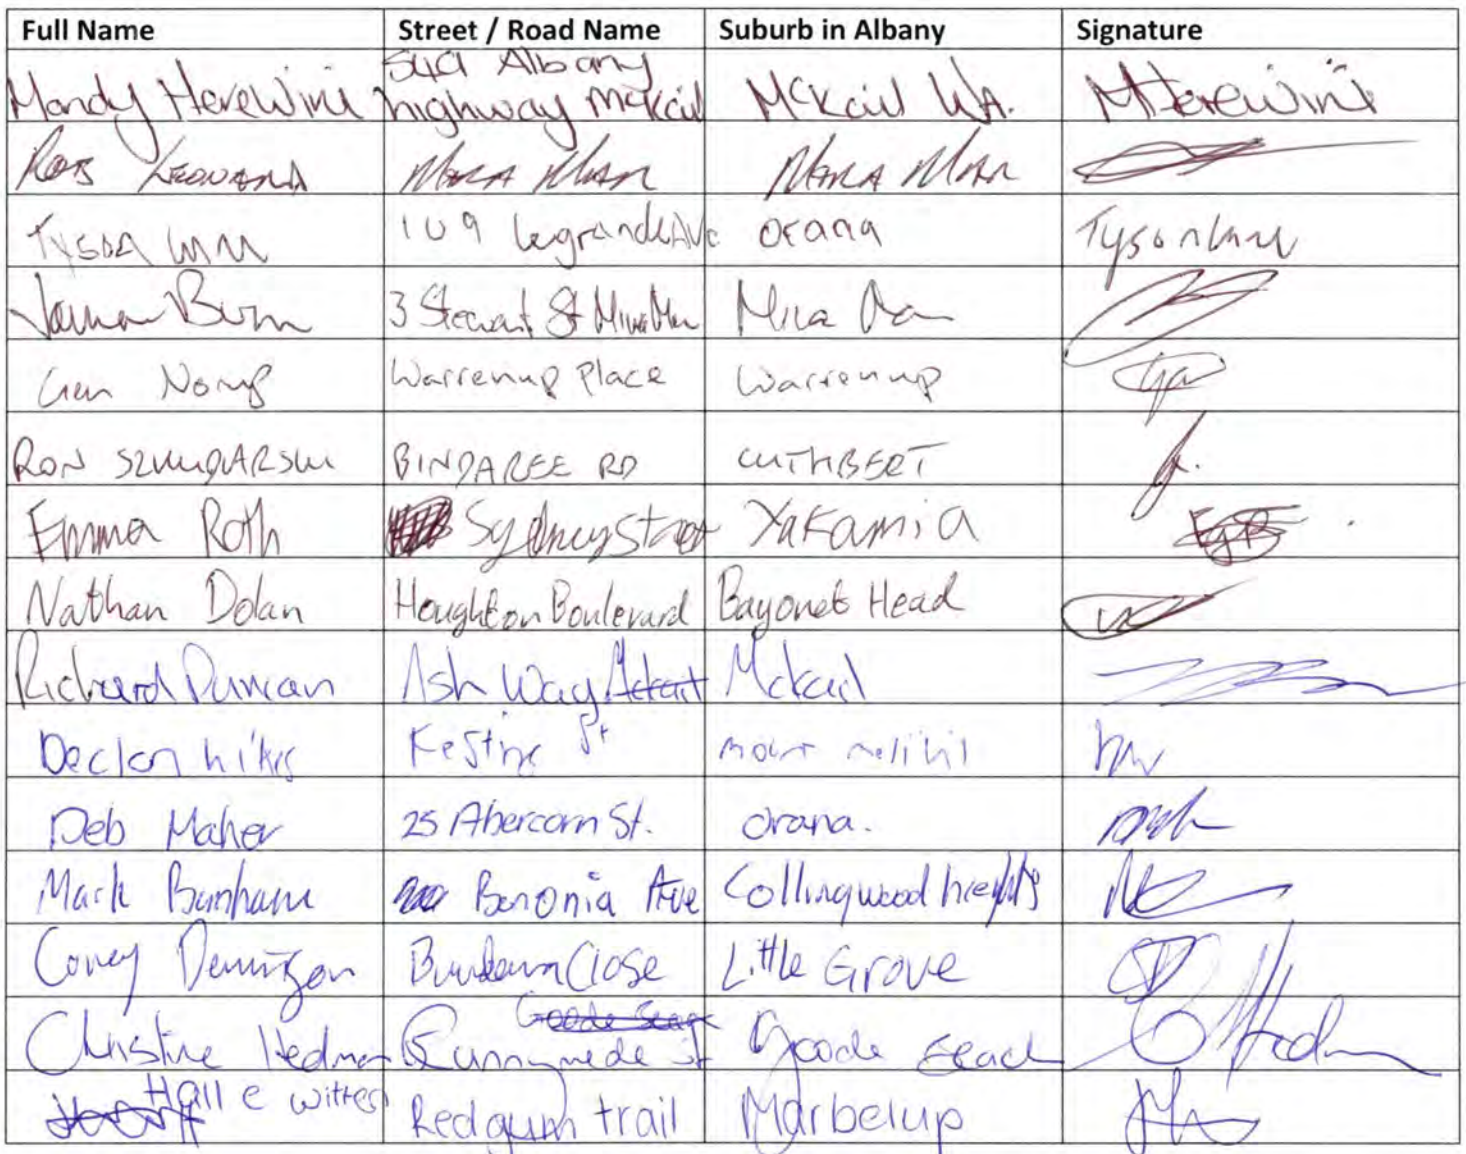 Full Name Street / Road Name Suburb in Albany Signature
Mandy Herewini 549 Albany highway Mckail McKail WA. MHerewini
Rob Leonard Mira Mar Mira Mar
Tyson 109 legrande Ave orana Tyson
3 Stewart St Mira Mar Mira Mar
Warrenup Place Warrenup
RON BINDAREE RD CUTHBERT
Emma Roth Sydney Street Yakamia
Nathan Dolan Houghton Boulevard Bayonet Head
Richard Duncan Ash Way Mckail Mckail
Declan Kesting St mount
Deb Maher 25 Abercorn St. orana.
Mark Bunham Boronia Ave Collingwood heights
Corey Dennizon Close Little Grove
Christine Hedman Goode Beach Runnymede st Goode Beach
Halle witten Redgum trail Marbelup